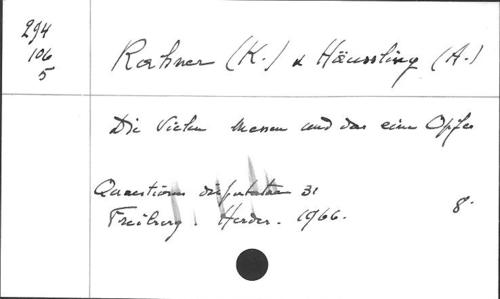 294
106
5
Rahner (K.) & Häussling (A.)
Die Vielen Messen und das eine Opfer
Quaestiones disputatae 31
Freiburg. Herder. 1966. 8°